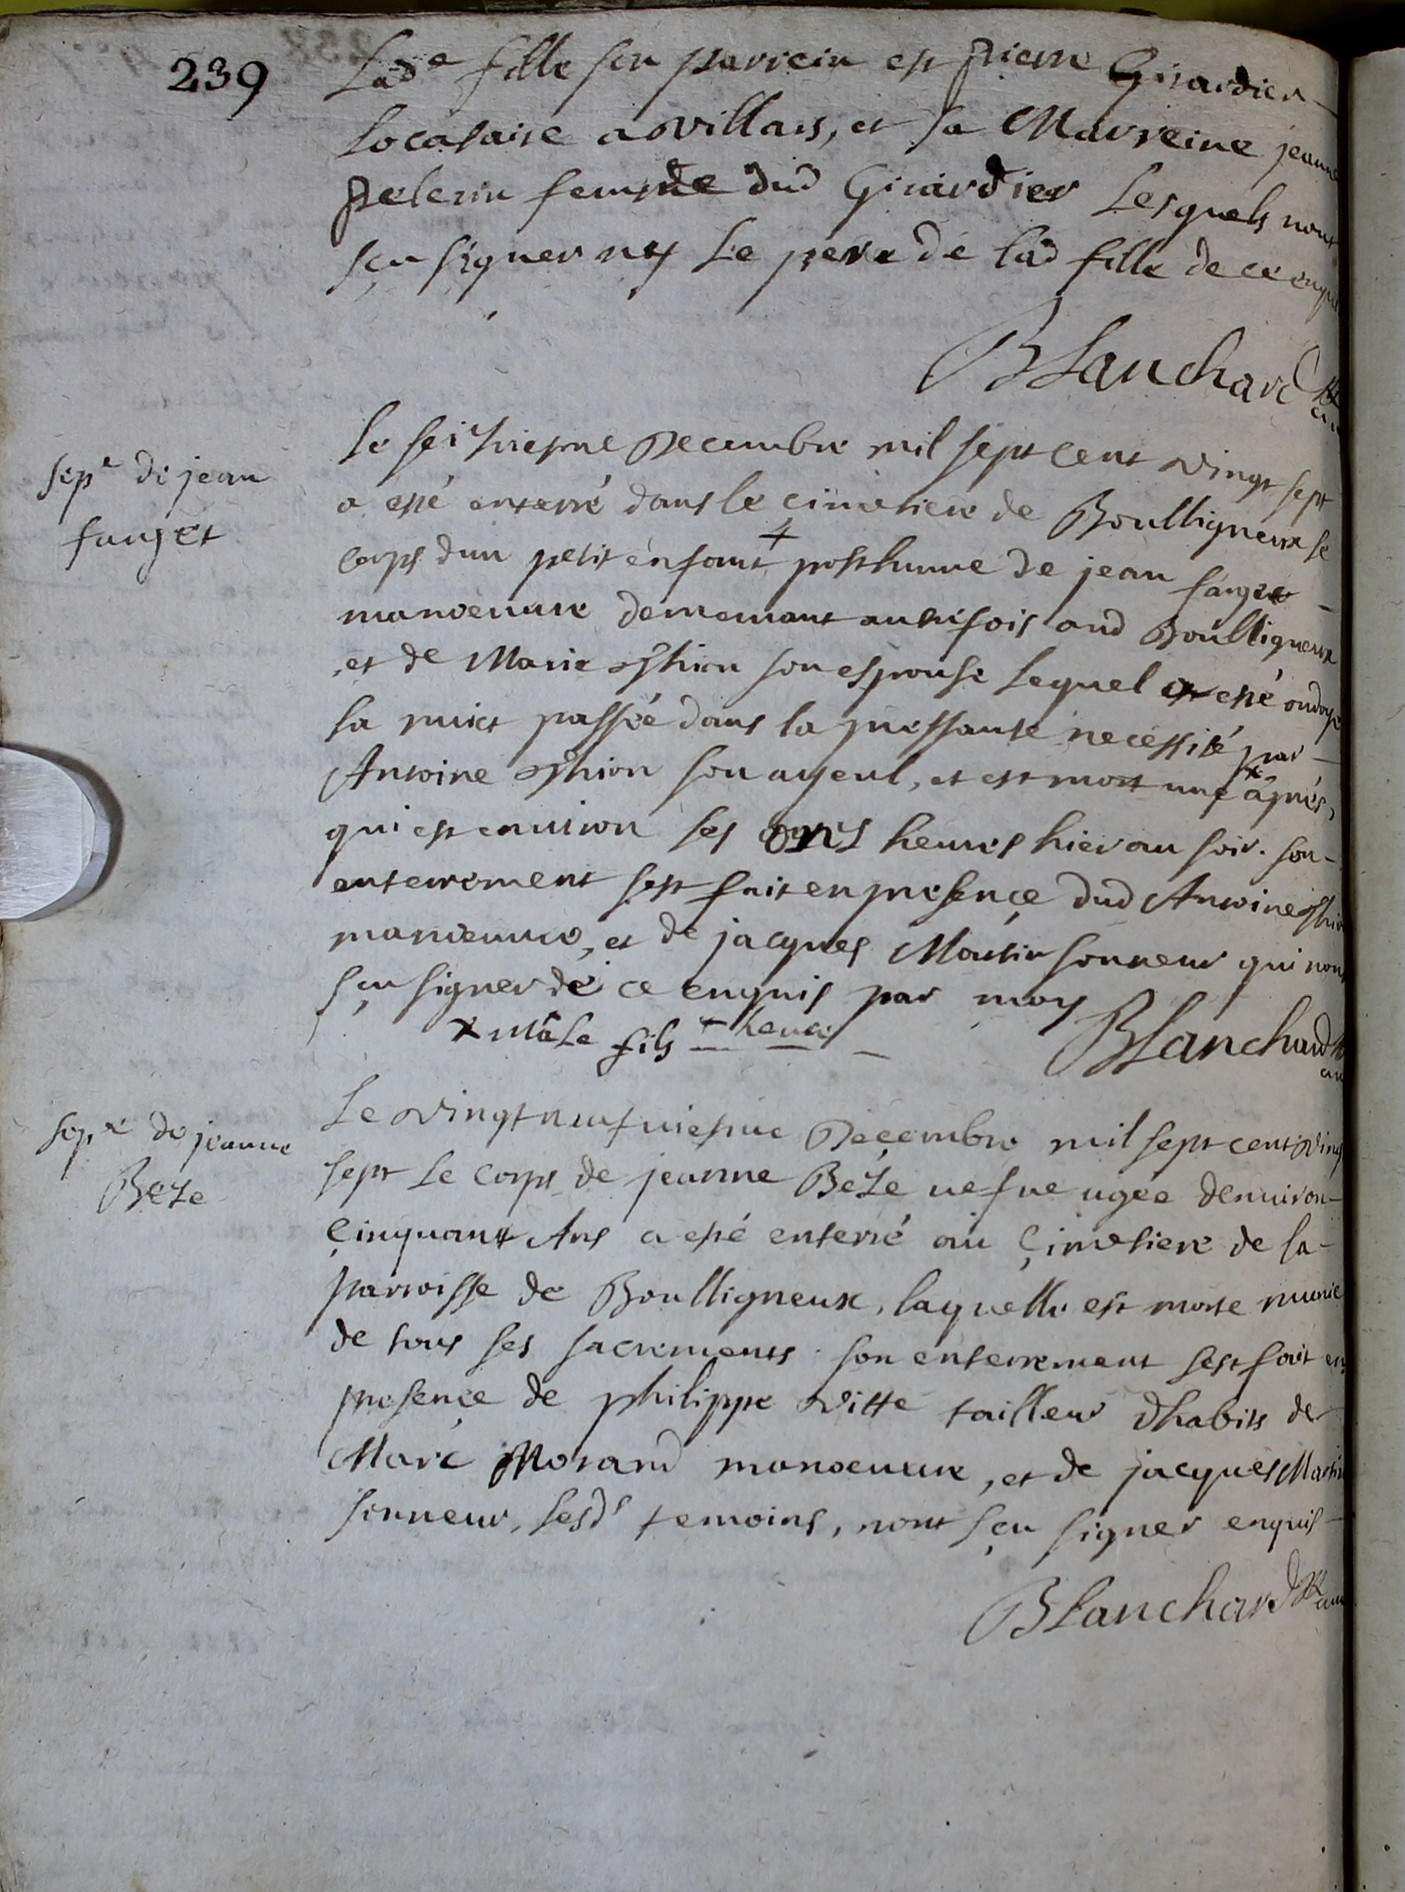 239
Lad^e fille son parrein est pierre Girardier
Locataire a Villars, et sa Marreine jeanne
pelerin femme dud Girardier Lesquels nont
sçu signer ny Le pere de lad fille de ce enquis
Blanchard
sep^e de jean
farget
Le seiziesme Decembre mil sept cent vingt sept
a esté enterré dans le cimetiere de Boulligneux le
corps dun petit enfant + posthume de jean farget
manoeuvre demeurant autrefois aud Boulligneux
et de Marie son espouse Lequel a esté ondoyé
la nuict passée dans la pressante necessité par
Antoine son ayeul, et est mort une x âprés,
qui est environ les onze heures hier au soir. son
enterrement sest fait en presençe dud Antoine
manoeuvre, et de jacques Martin sonneur qui nont
sçu signer de ce enquis par moy
x mâle fils + heure
Blanchard
sep^e de jeanne
Beze
Le vingt neufuiesme Deçembre mil sept cent vingt
sept Le corps de jeanne Beze uefue agée denuiron
Çinquante Ans a esté enterré au Çimetiere de la
parroisse de Boulligneux, laquelle est morte munie
de tous ses sacrements. son enterrement sest fait en
presençe de philippe vitte tailleur dhabits de
Marc Morand manoeuure, et de jacques Martin
sonneur, lesd^s temoins, nont sçu signer enquis
Blanchard